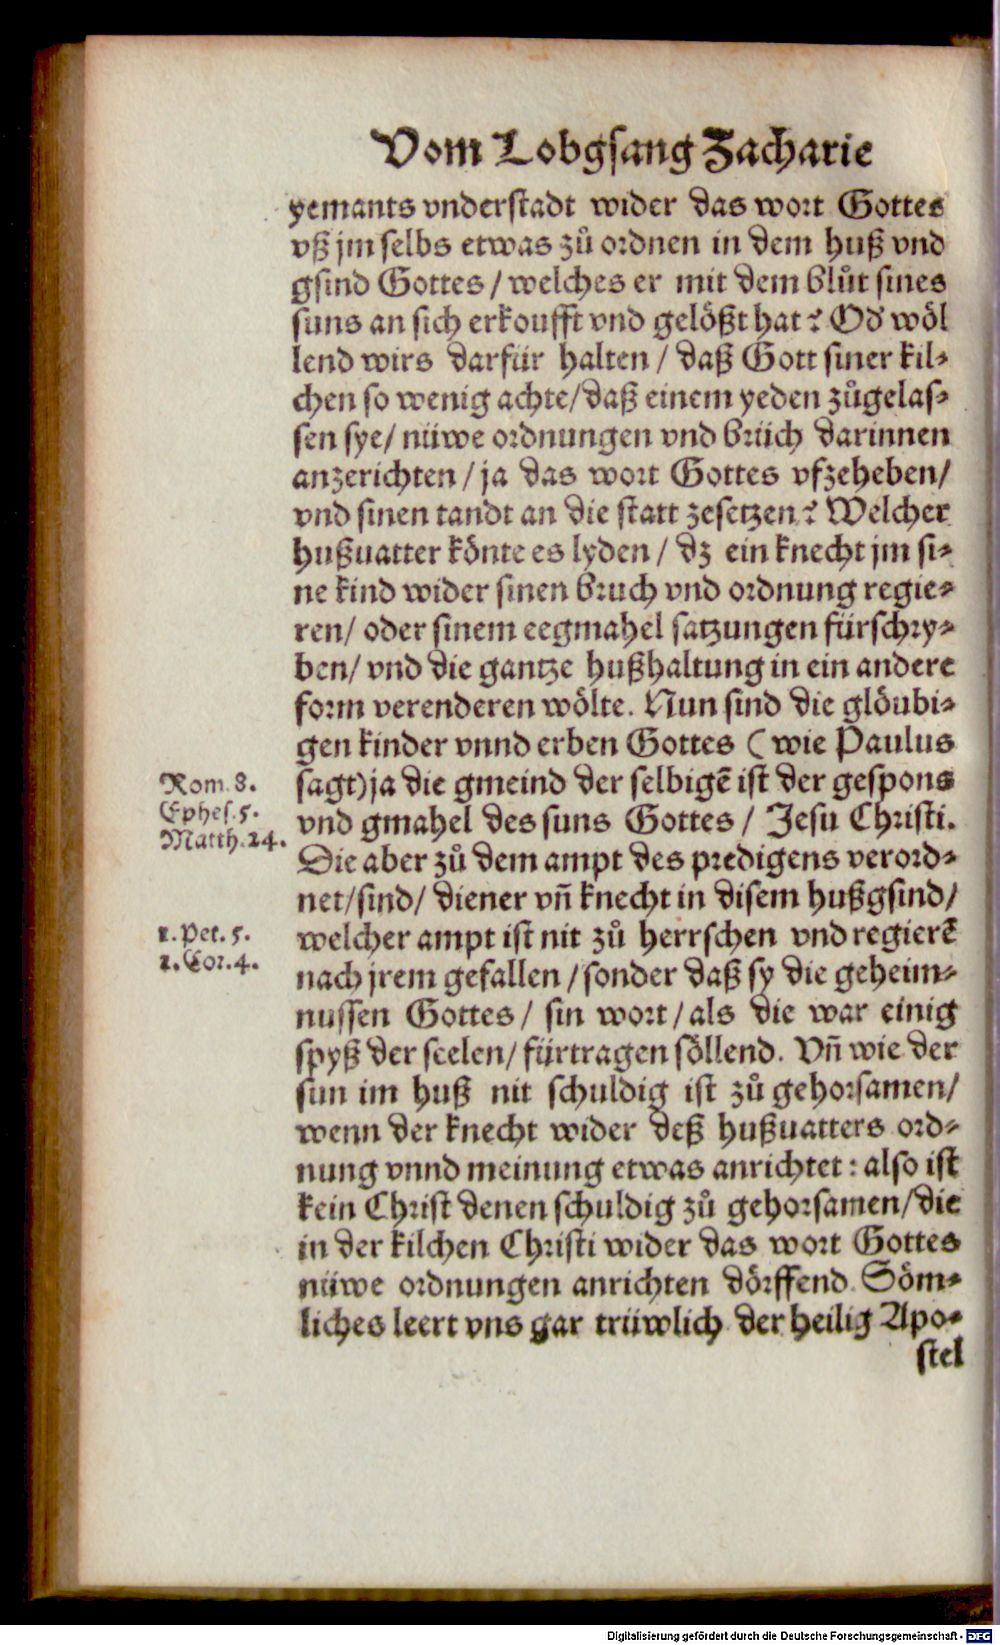 Vom Lobgsang Zacharie
yemants vnderstadt wider das wort Gottes
vß jm selbs etwas zů ordnen in dem huß vnd
gsind Gottes / welches er mit dem blůt sines
suns an sich erkoufft vnd gelößt hat? Od̕ wöl
lend wirs darfür halten / daß Gott siner kil-
chen so wenig achte / daß einem yeden zůgelas-
sen sye / nüwe ordnungen vnd brüch darinnen
anzerichten / ja das wort Gottes vfzeheben /
vnd sinen tandt an die statt zesetzen? Welcher
hußuatter könte es lyden / dz ein knecht jm si-
ne kind wider sinen bruch vnd ordnung regie-
ren / oder sinem eegmahel satzungen fürschry-
ben / vnd die gantze hußhaltung in ein andere
form verenderen wölte. Nun sind die glöubi-
gen kinder vnnd erben Gottes ( wie Paulus
Rom. 8.
sagt) ja die gmeind der selbigē ist der gespons
Ephes. 5.
vnd gmahel des suns Gottes / Jesu Christi.
Matth. 24.
Die aber zů dem ampt des predigens verord-
net / sind / diener vñ knecht in disem hußgsind /
1. Pet. 5.
welcher ampt ist nit zů herrschen vnd regierē
1. Cor. 4.
nach jrem gefallen / sonder daß sy die geheim-
nussen Gottes / sin wort / als die war einig
spyß der seelen / fürtragen söllend. Vñ wie der
sun im huß nit schuldig ist zů gehorsamen /
wenn der knecht wider deß hußuatters ord-
nung vnnd meinung etwas anrichtet : also ist
kein Christ denen schuldig zů gehorsamen / die
in der kilchen Christi wider das wort Gottes
nüwe ordnungen anrichten dörffend. Söm-
liches leert vns gar trüwlich der heilig Apo-
stel
Digitalisierung gefördert durch die Deutsche Forschungsgemeinschaft - DFG